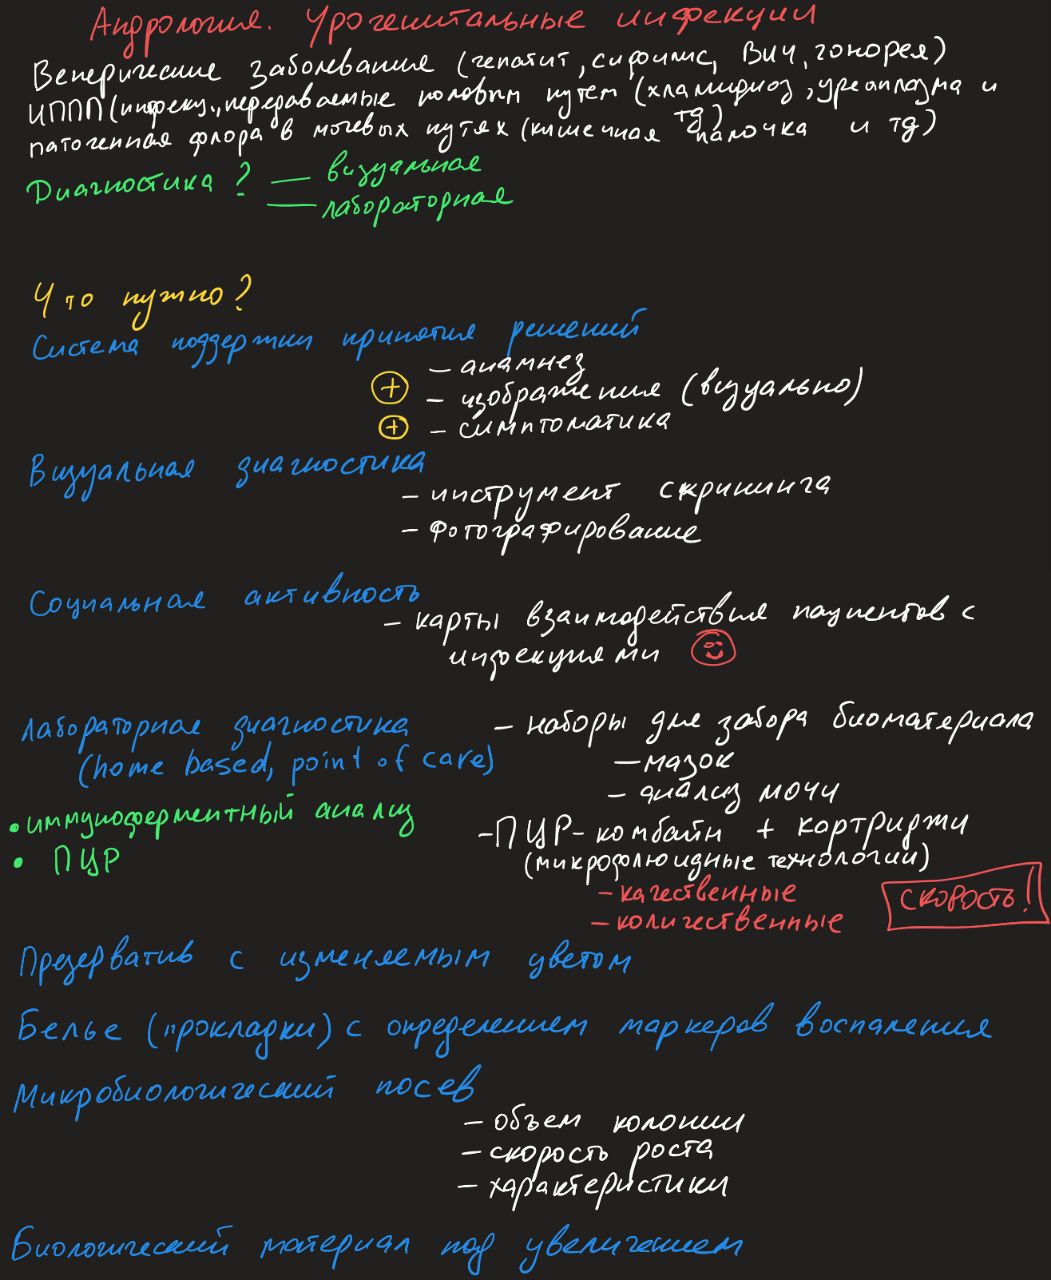 Андрология. Урогенитальные инфекции
Венерические заболевания (гепатит, сифилис, ВИЧ, гонорея)
ИППП (инфекц., передаваемые половым путем (хламидиоз, уреаплазма и тд)
патогенная флора в мочевых путях (кишечная палочка и тд)
Диагностика? — визуальная
— лабораторная
Что нужно?
Система поддержки принятия решений
— анамнез
+ — изображения (визуально)
+ — симптоматика
Визуальная диагностика
— инструмент скрининга
— Фотографирование
Социальная активность
— карты взаимодействия пациентов с
инфекциями
Лабораторная диагностика
(home based, point of care)
• иммуноферментный анализ
• ПЦР
— наборы для забора биоматериала
— мазок
— анализ мочи
— ПЦР-комбайн + картриджи
(микрофлюидные технологии)
— качественные
— количественные
СКОРОСТЬ!
Презерватив с изменяемым цветом
Белье (прокладки) с определением маркеров воспаления
Микробиологический посев
— объем колонии
— скорость роста
— характеристики
Биологический материал под увеличением